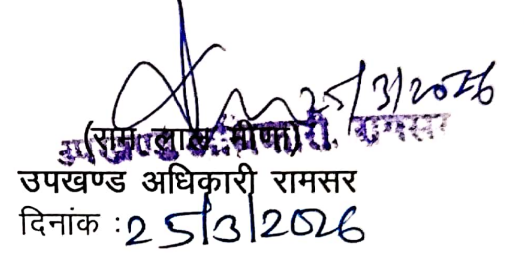 25/3/2026
(राम लाल मीणा)
उपखण्ड अधिकारी, रामसर
उपखण्ड अधिकारी रामसर
दिनांक :25/3/2026